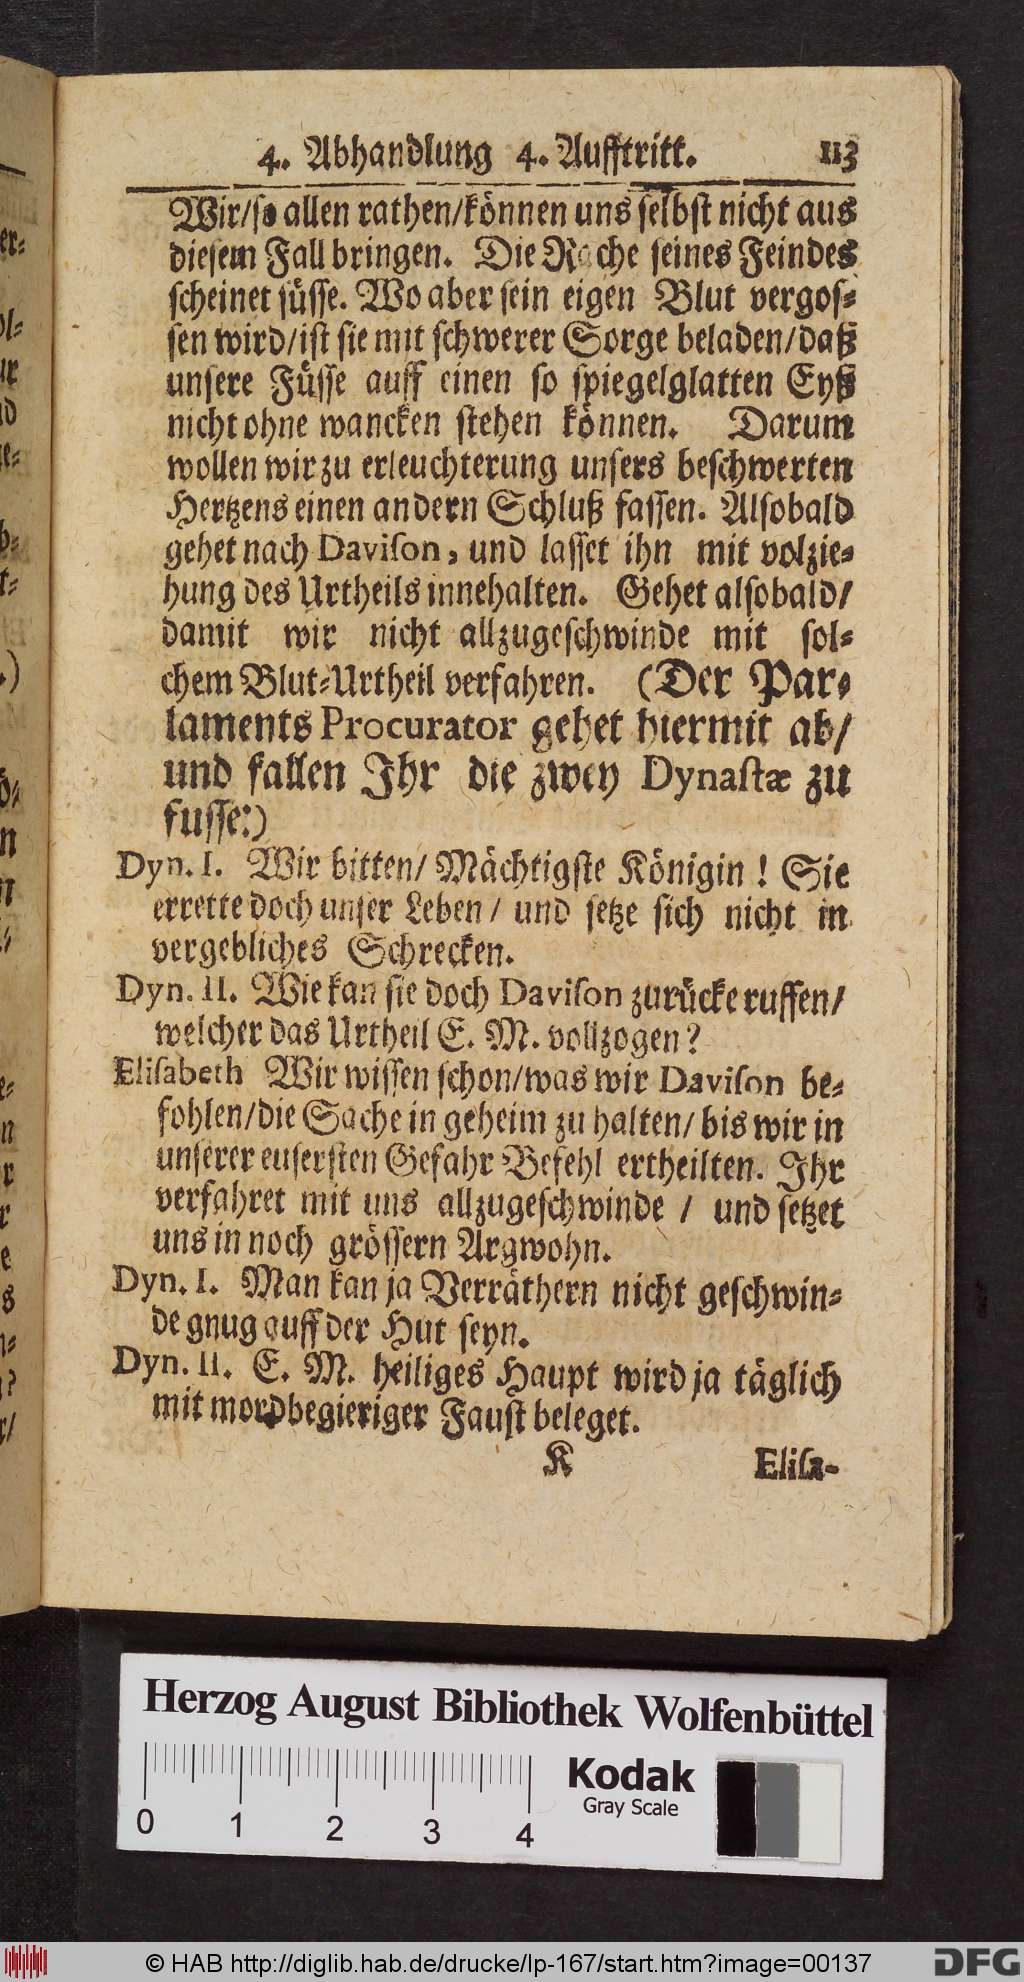 4. Abhandlung 4. Aufftritt. 113
Wir/so allen rathen/können uns selbst nicht aus
diesem Fall bringen. Die Rache seines Feindes
scheinet süsse. Wo aber sein eigen Blut vergos-
sen wird/ist sie mit schwerer Sorge beladen/daß
unsere Füsse auff einen so spiegelglatten Eyß
nicht ohne wancken stehen können. Darum
wollen wir zu erleuchterung unsers beschwerten
Hertzens einen andern Schluß fassen. Alsobald
gehet nach Davison, und lasset ihn mit volzie-
hung des Urtheils innehalten. Gehet alsobald/
damit wir nicht allzugeschwinde mit sol-
chem Blut-Urtheil verfahren. (Der Par-
laments Procurator gehet hiermit ab/
und fallen Ihr die zwey Dynastæ zu
fusse:)
Dyn. I. Wir bitten/ Mächtigste Königin! Sie
errette doch unser Leben/ und setze sich nicht in
vergebliches Schrecken.
Dyn. II. Wie kan sie doch Davison zurücke ruffen/
welcher das Urtheil E. M. vollzogen?
Elisabeth Wir wissen schon/was wir Davison be-
fohlen/die Sache in geheim zu halten/ bis wir in
unserer eusersten Gefahr Befehl ertheilten. Ihr
verfahret mit uns allzugeschwinde / und setzet
uns in noch grössern Argwohn.
Dyn. I. Man kan ja Verräthern nicht geschwin-
de gnug auff der Hut seyn.
Dyn. II. E. M. heiliges Haupt wird ja täglich
mit mordbegieriger Faust beleget.
K Elisa-
Herzog August Bibliothek Wolfenbüttel
Kodak
Gray Scale
0 1 2 3 4
© HAB http://diglib.hab.de/drucke/lp-167/start.htm?image=00137
DFG